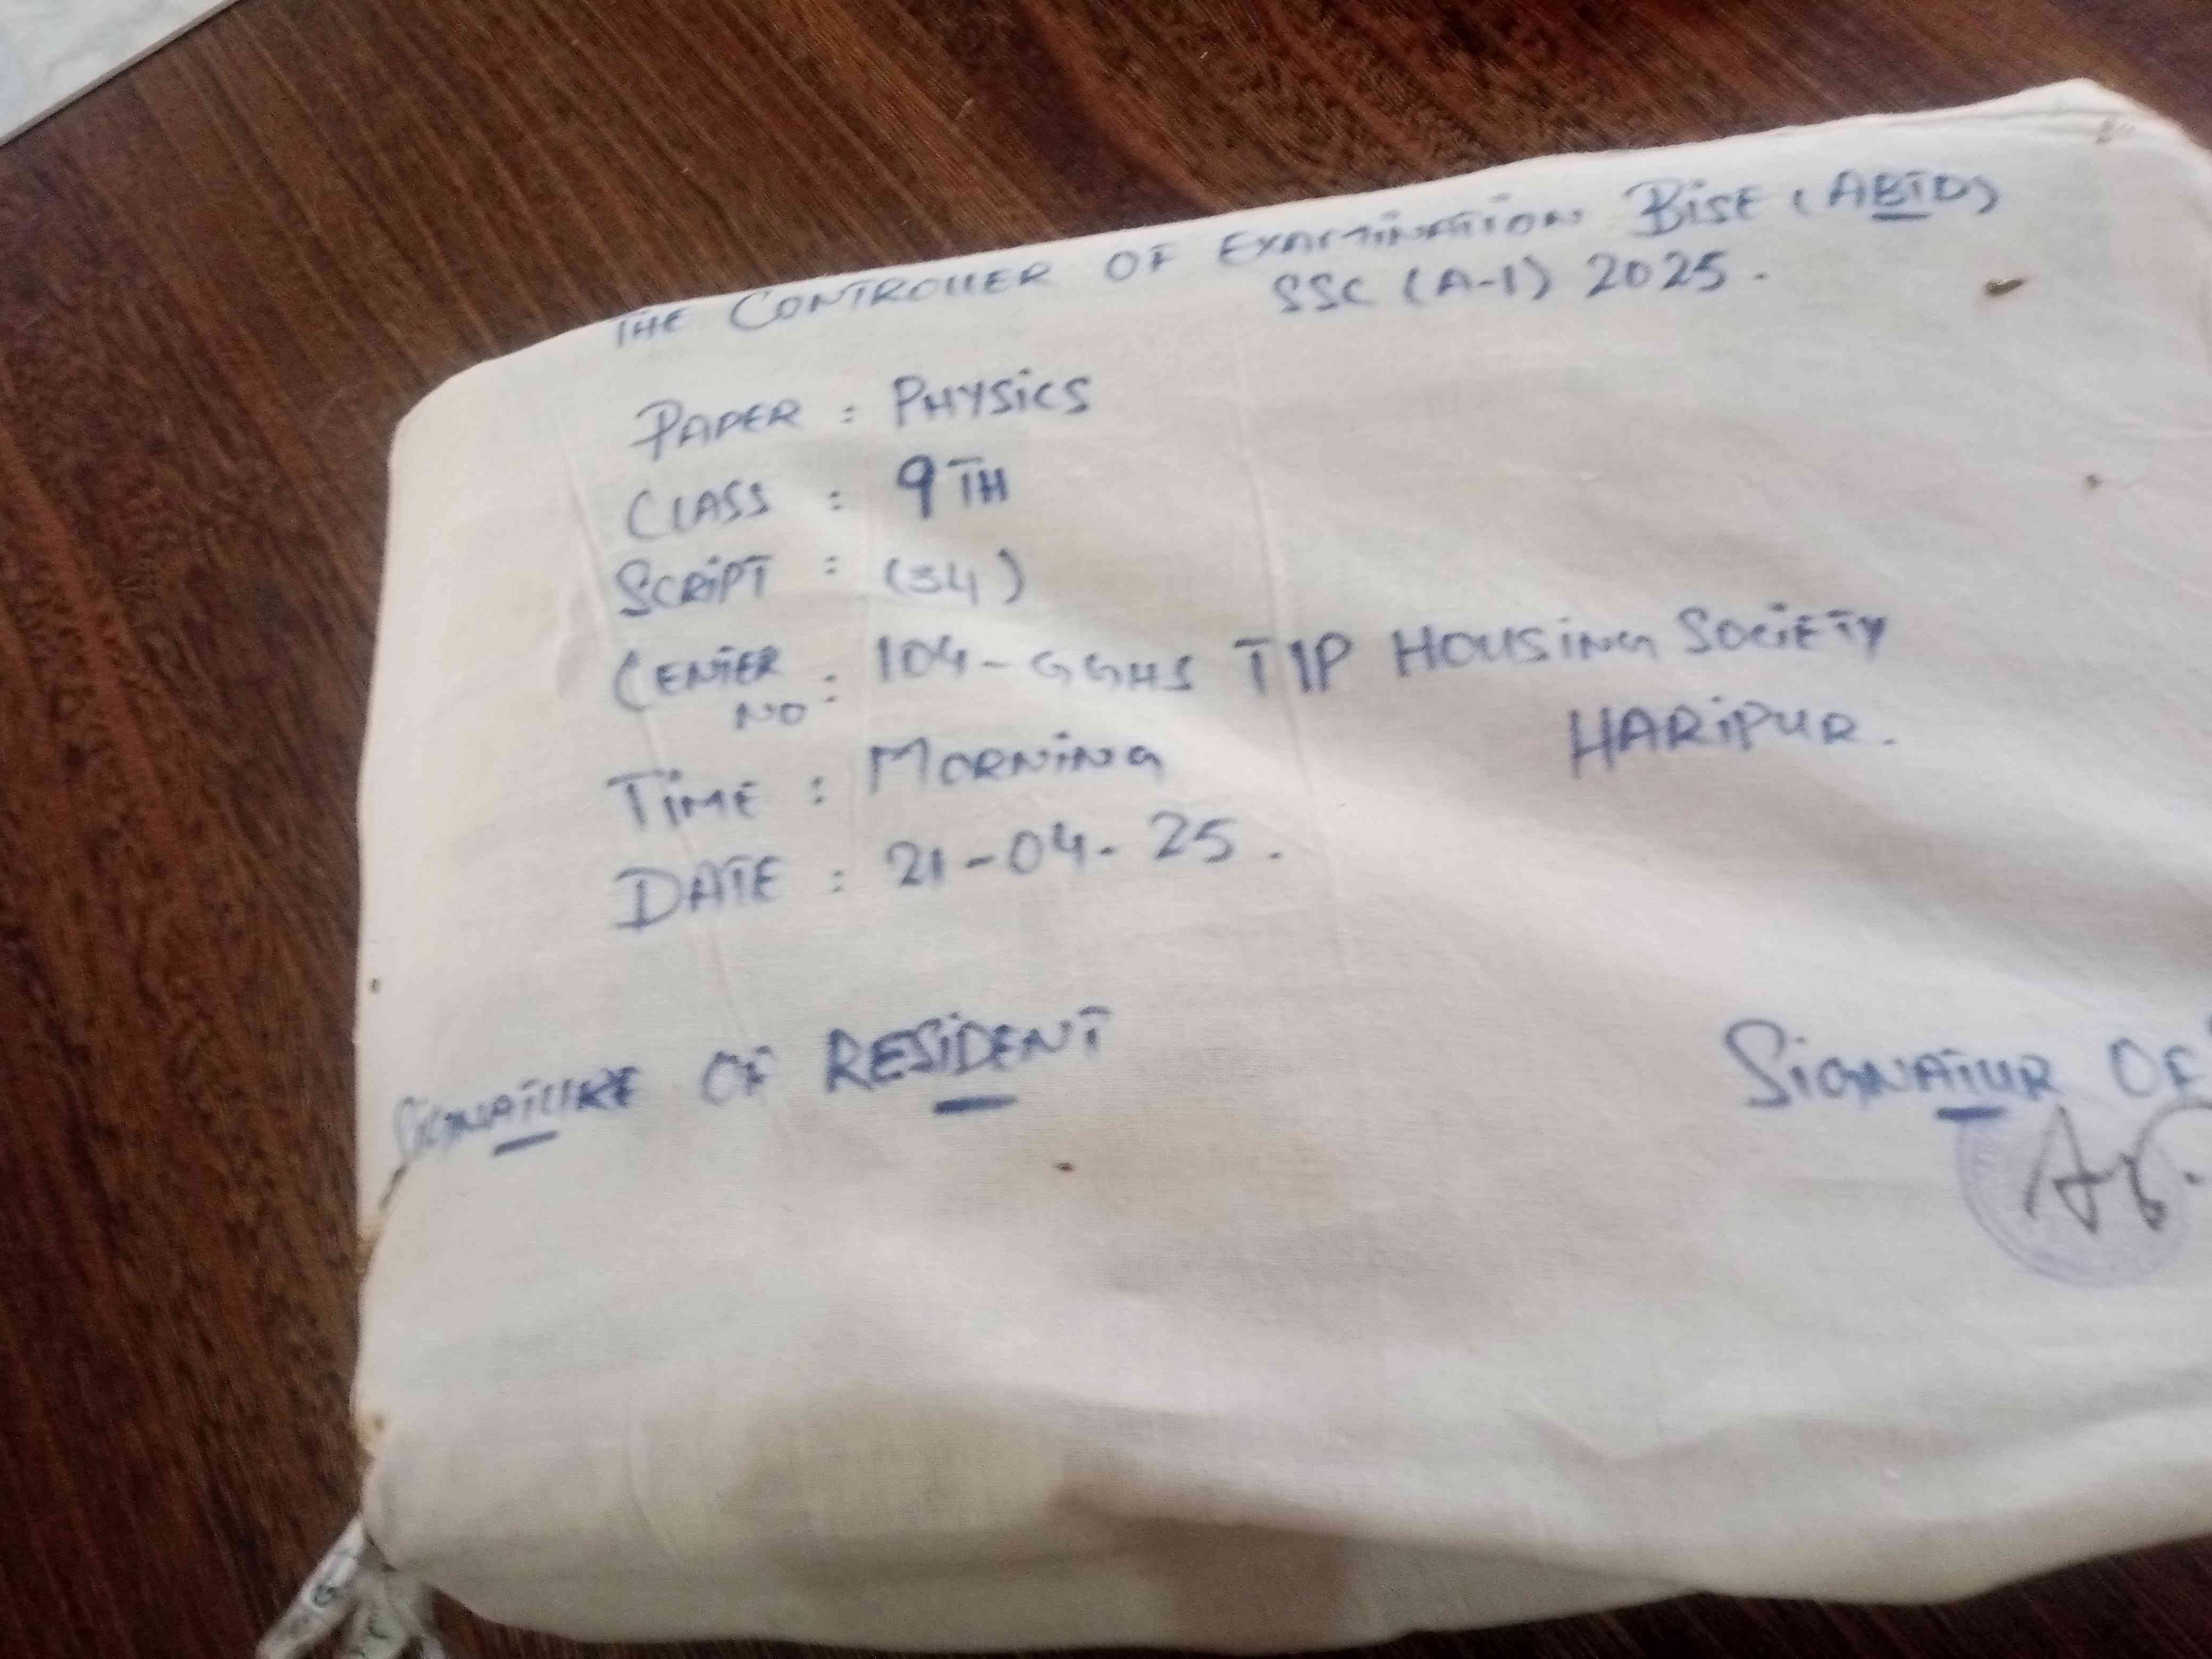 THE CONTROLLER OF EXAMINATION BISE (ABTD)
SSC (A-I) 2025.
PAPER : PHYSICS
CLASS : 9TH
SCRIPT : (34)
CENTER NO : 104-GGHS TIP HOUSING SOCIETY
HARIPUR.
TIME : MORNING
DATE : 21-04-25.
SIGNATURE OF RESIDENT
SIGNATUR OF